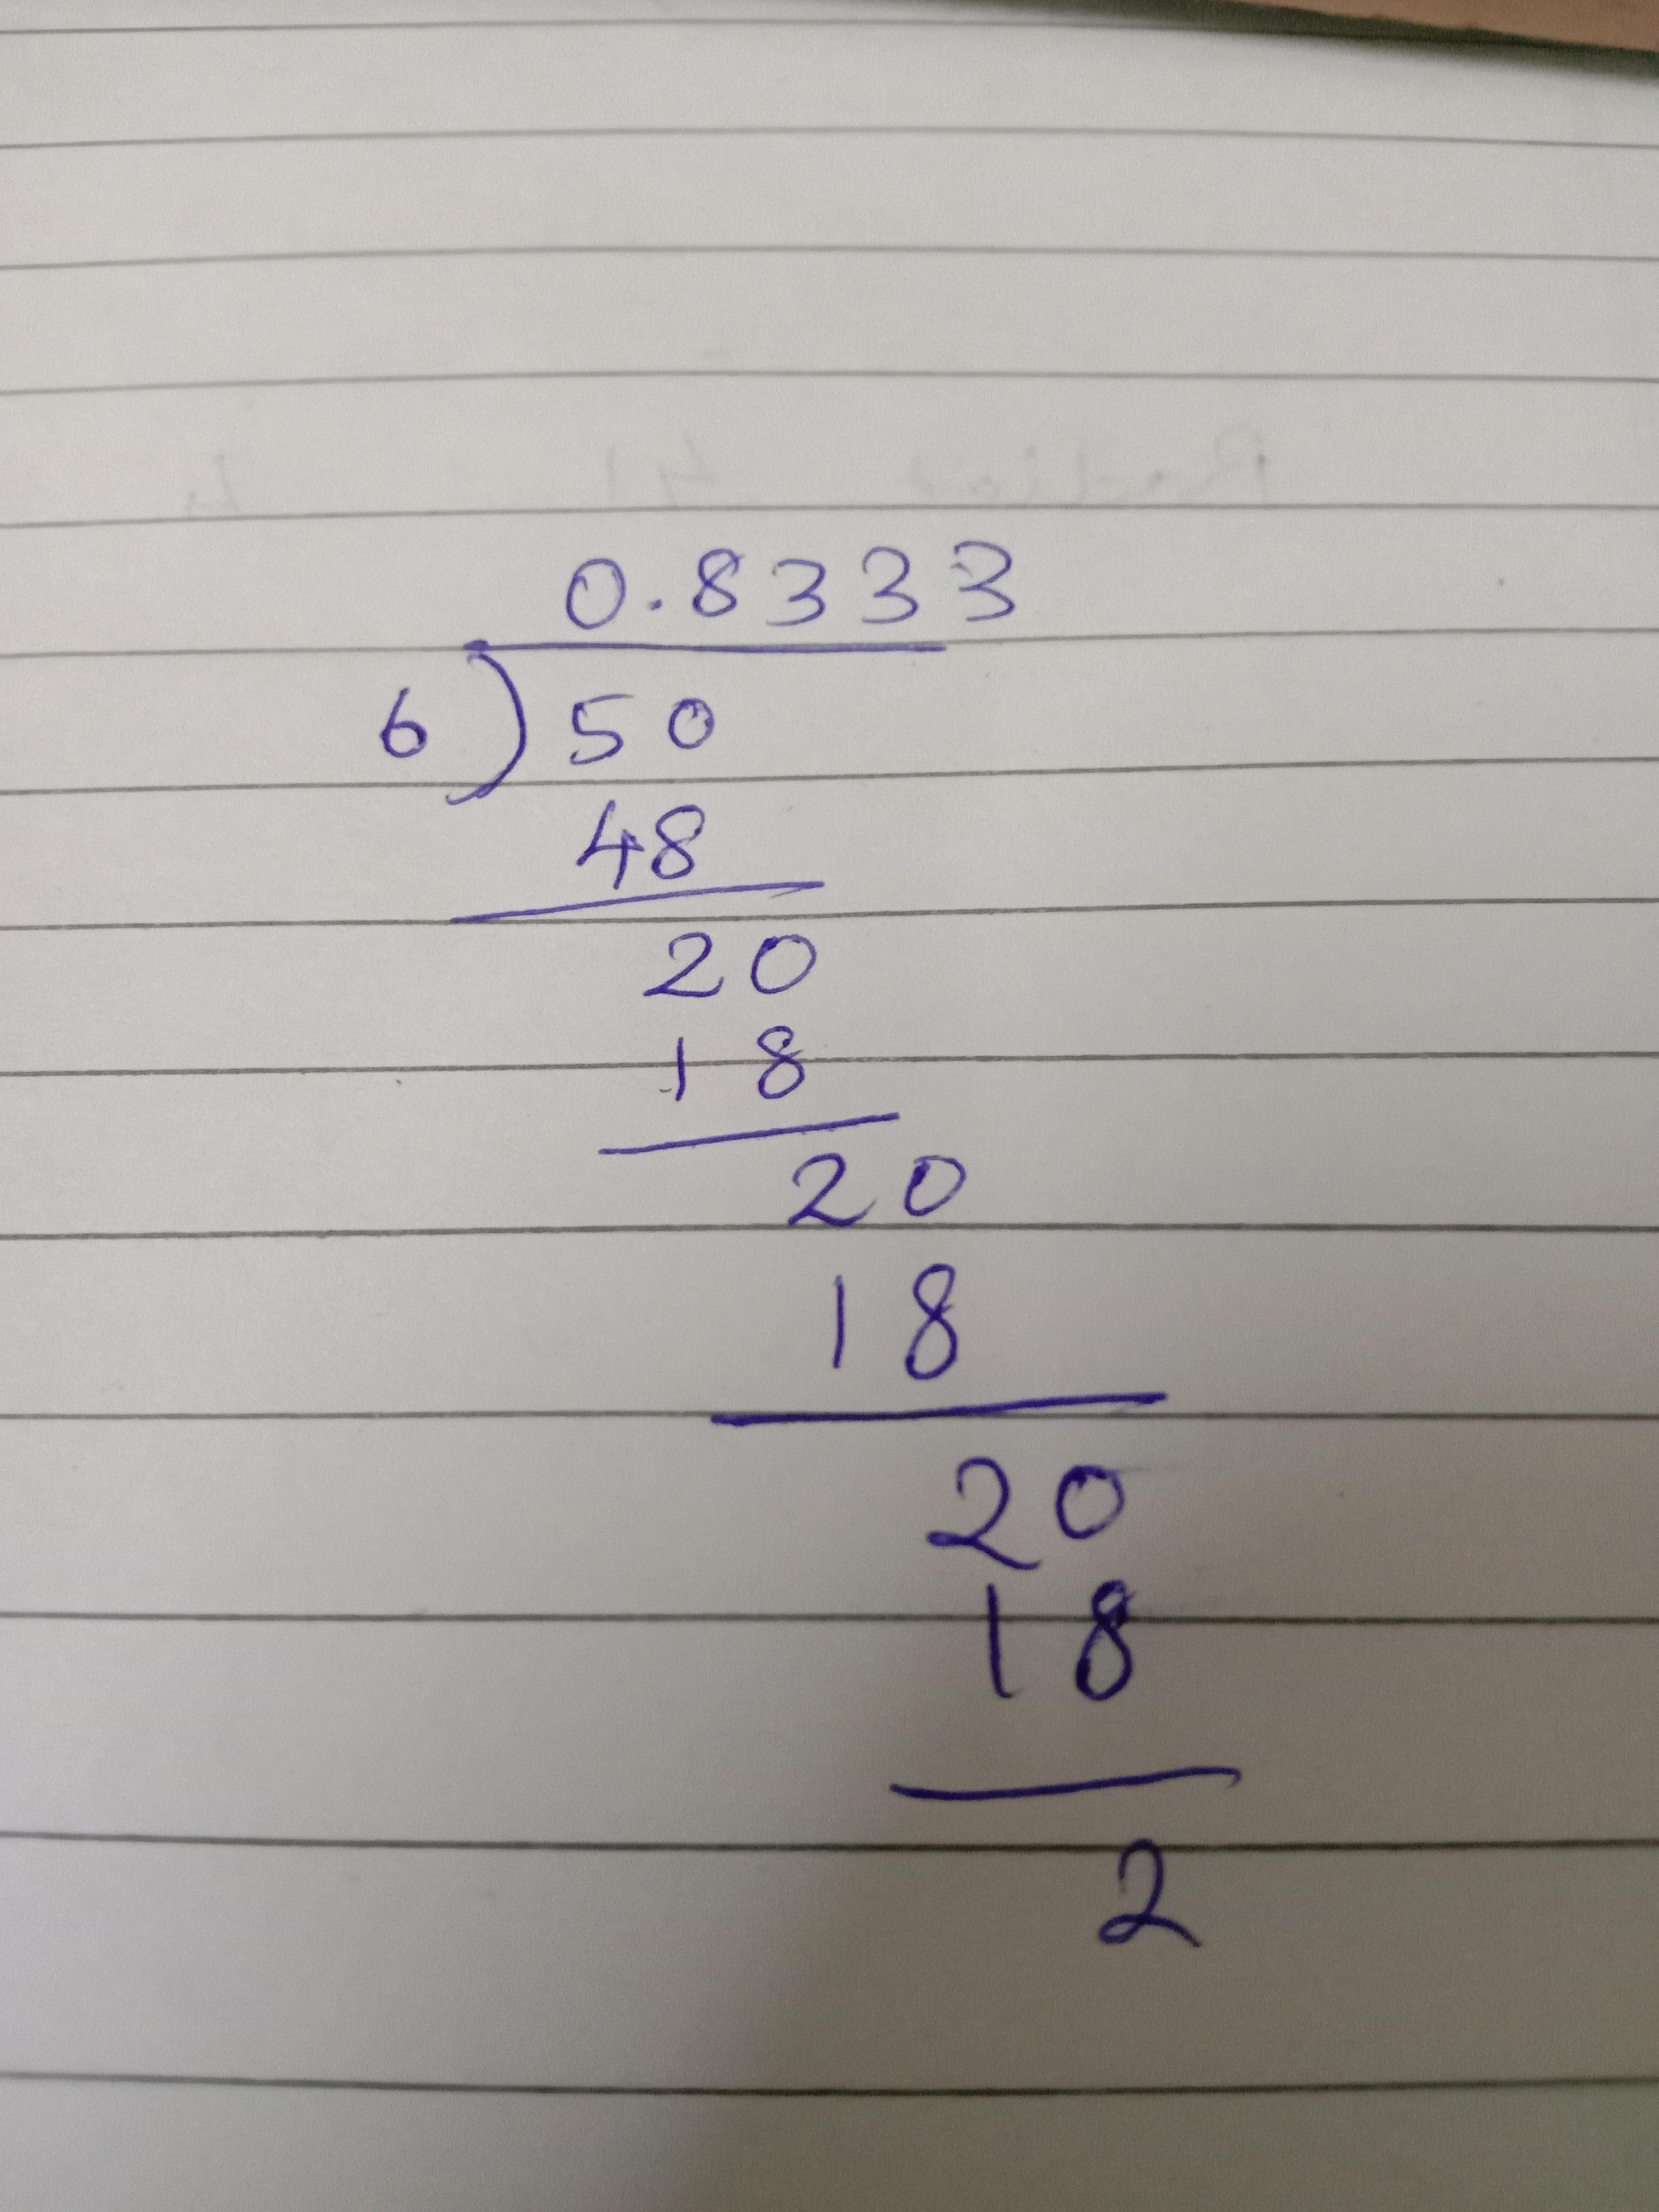 0.8333
6)50
48
20
18
20
18
20
18
2